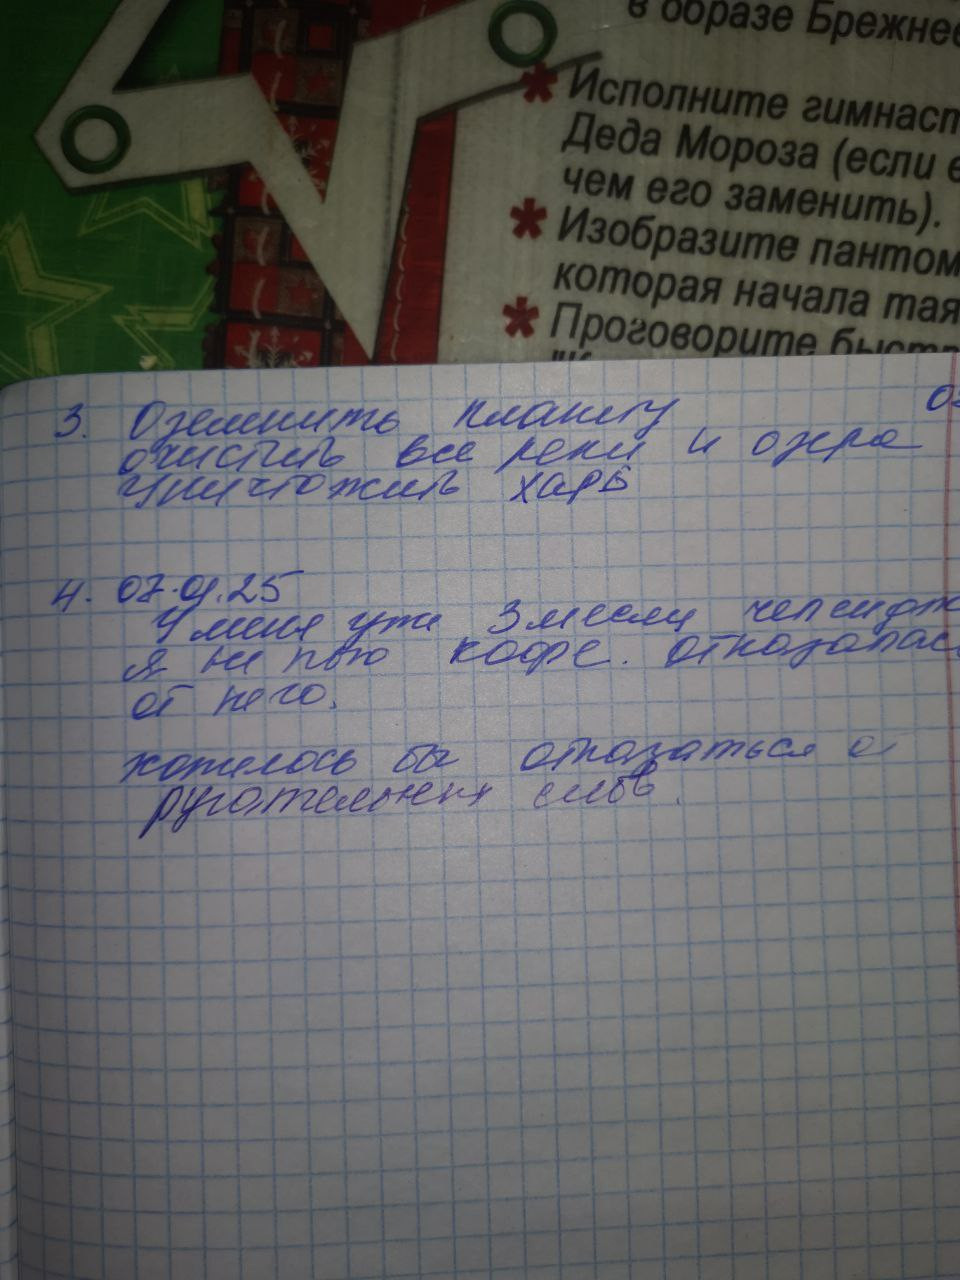 в образе Брежнев
* Исполните гимнаст
Деда Мороза (если е
чем его заменить).
* Изобразите пантом
которая начала тая
* Проговорите быстр
3. Оземнить планету
очистить все реки и озера
уничтожить
4. 07.01.25
У меня уже 3 месяц челендж
я не пью кофе. отказалась
от него.
хотелось бы отказаться о
ругательных слов.